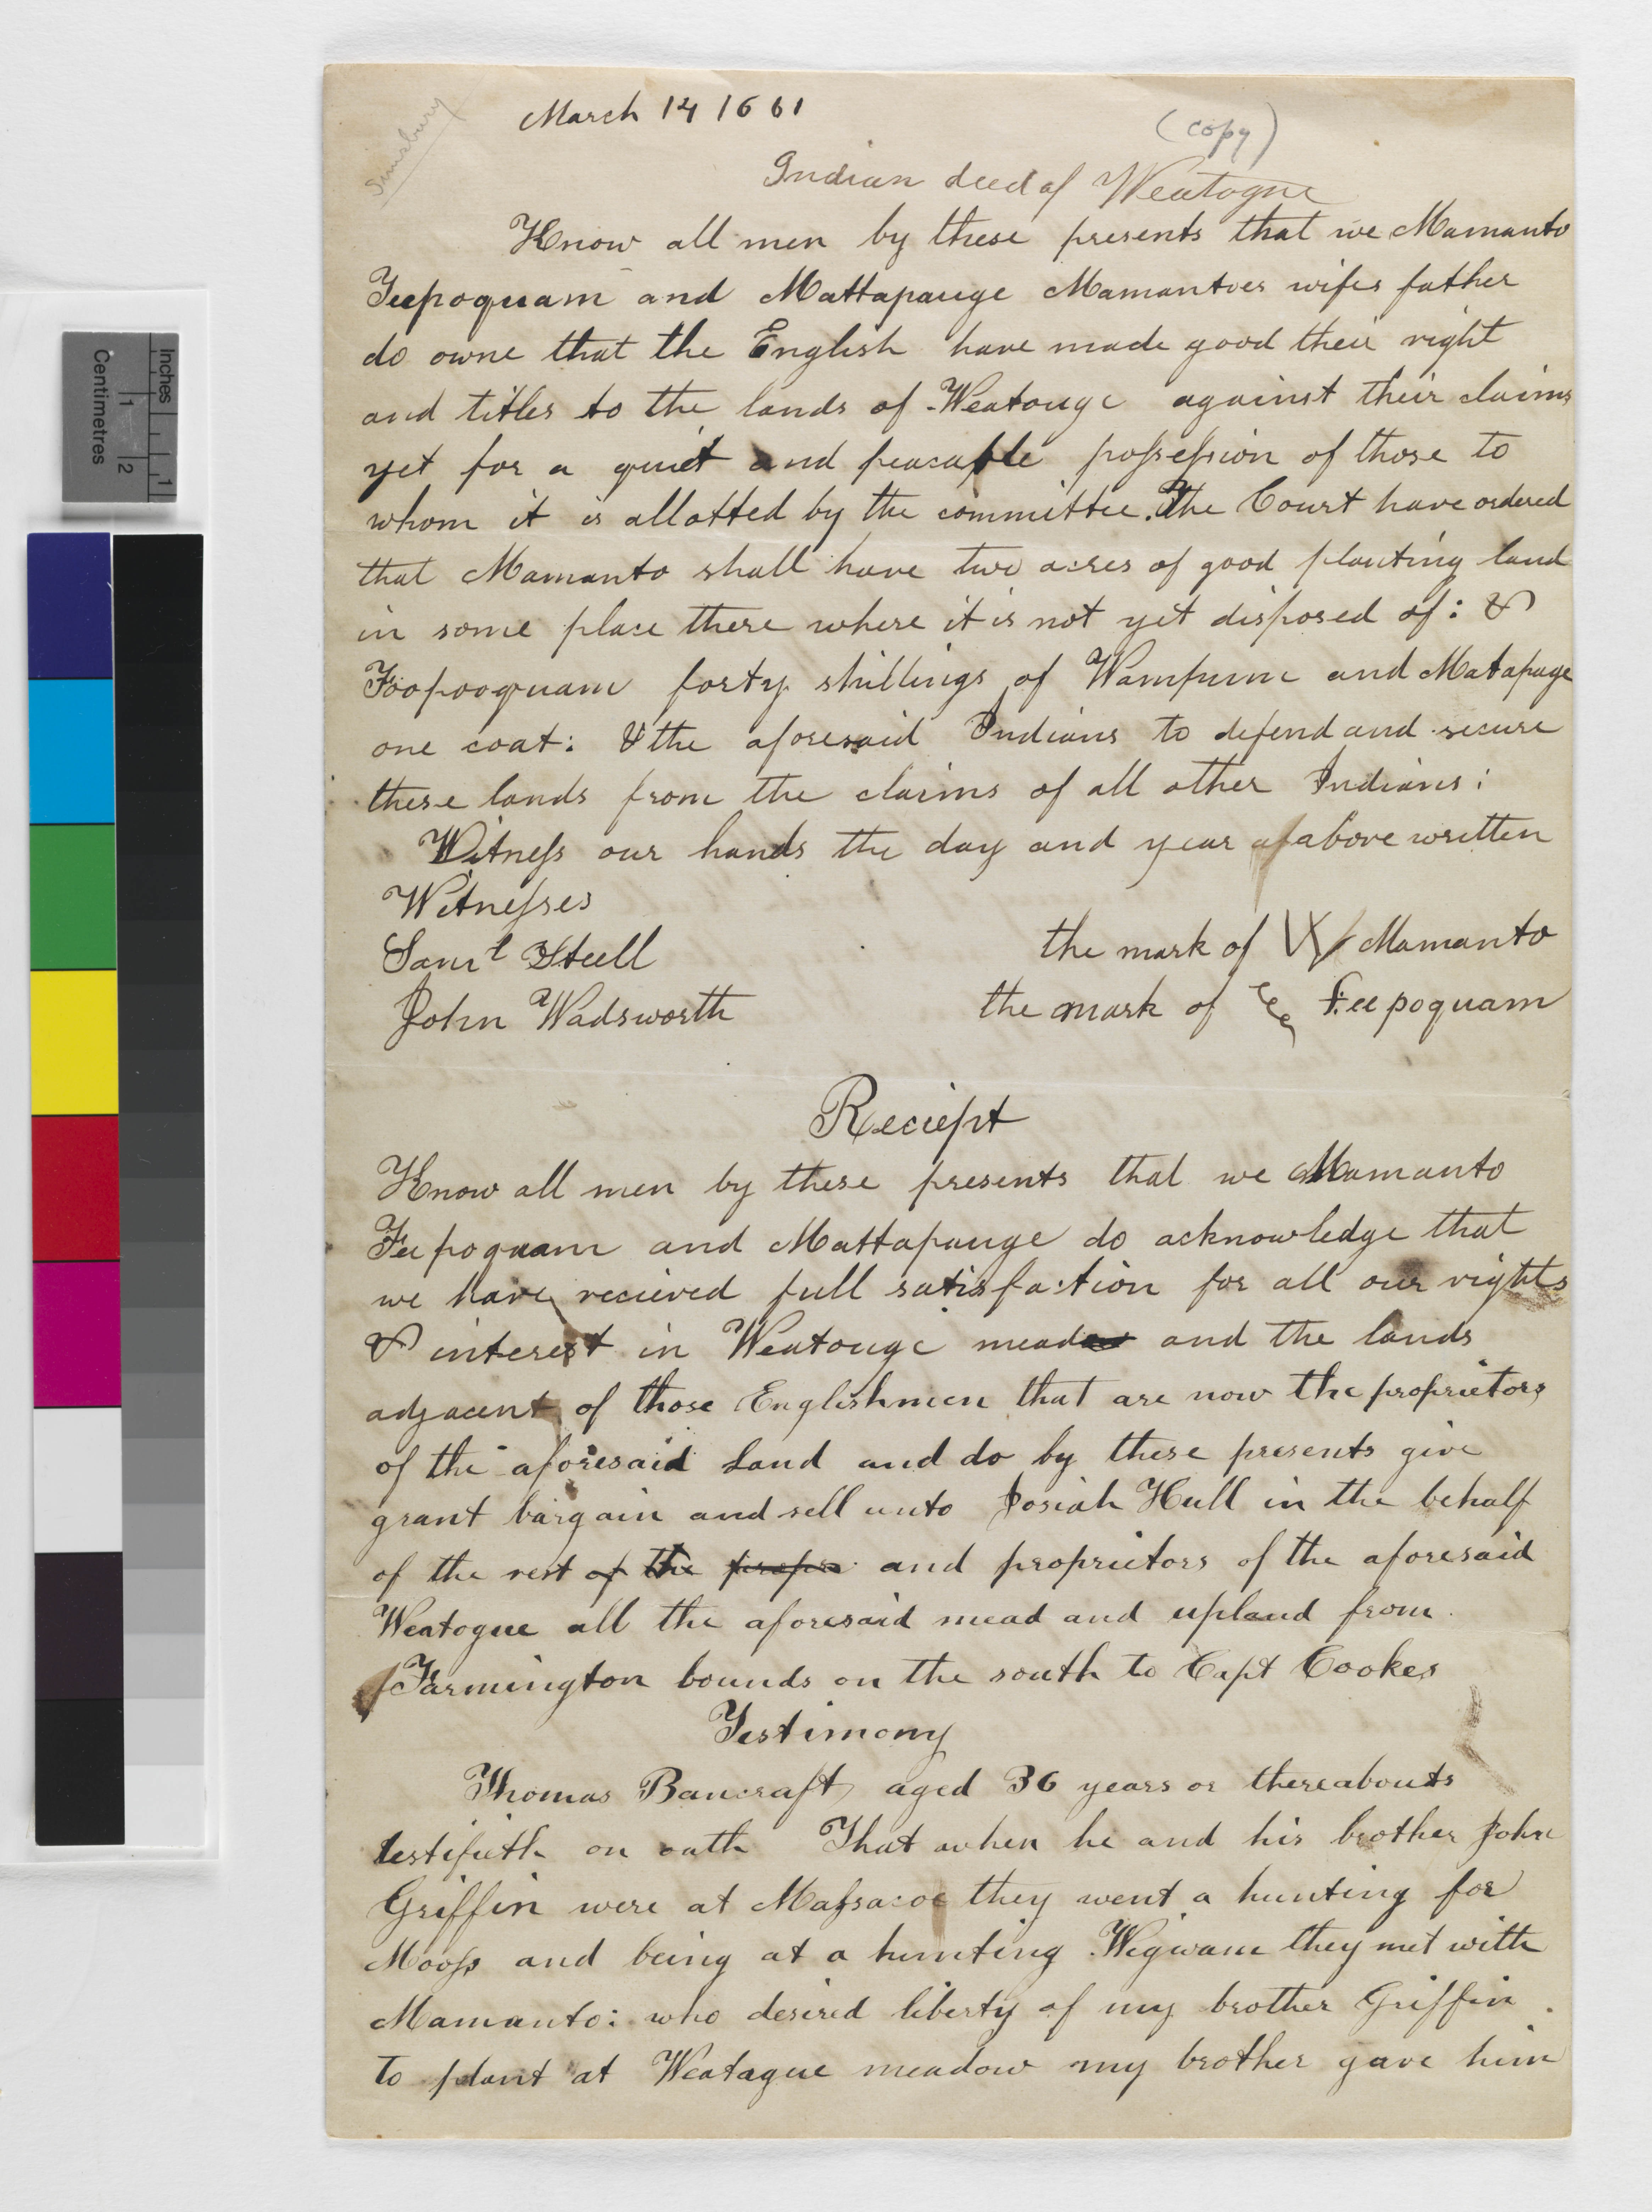 Simsbury
March 14 1661
(copy)
Indian deed of Weatogue
Know all men by these presents that we Mamanto
Teepoquam and Mattapauge Mamantoes wifes father
do owne that the English have made good their right
and titles to the lands of Weatouge against their claims
yet for a quiet and peacable possession of those to
whom it is allotted by the committee. The Court have ordered
that Mamanto shall have two acres of good planting land
in some place there where it is not yet disposed of: &
Toopooquam forty shillings of Wampum and Matapage
one coat: & the aforesaid Indians to defend and secure
these lands from the claims of all other Indians:
Witness our hands the day and year as above written
Witnesses
Saml Steell
the mark of Mamanto
John Wadsworth
the mark of Teepoquam
Reciept
Know all men by these presents that we Mamanto
Teepoquam and Mattapauge do acknowledge that
we have recieved full satisfaction for all our rights
& interest in Weatouge mead and the lands
adjacent of those Englishmen that are now the proprietors
of the aforesaid Land and do by these presents give
grant bargain and sell unto Josiah Hull in the behalf
of the rest of the propr and proprietors of the aforesaid
Weatogue all the aforesaid mead and upland from
Farmington bounds on the south to Capt Cookes
Testimony
Thomas Bancraft aged 36 years or thereabouts
testifieth on oath That when he and his brother John
Griffin were at Massacoe they went a hunting for
Mooss and being at a hunting Wigwam they met with
Mamanto: who desired liberty of my brother Griffin
to plant at Weatague meadow my brother gave him
Inches
1
Centimetres
1
2